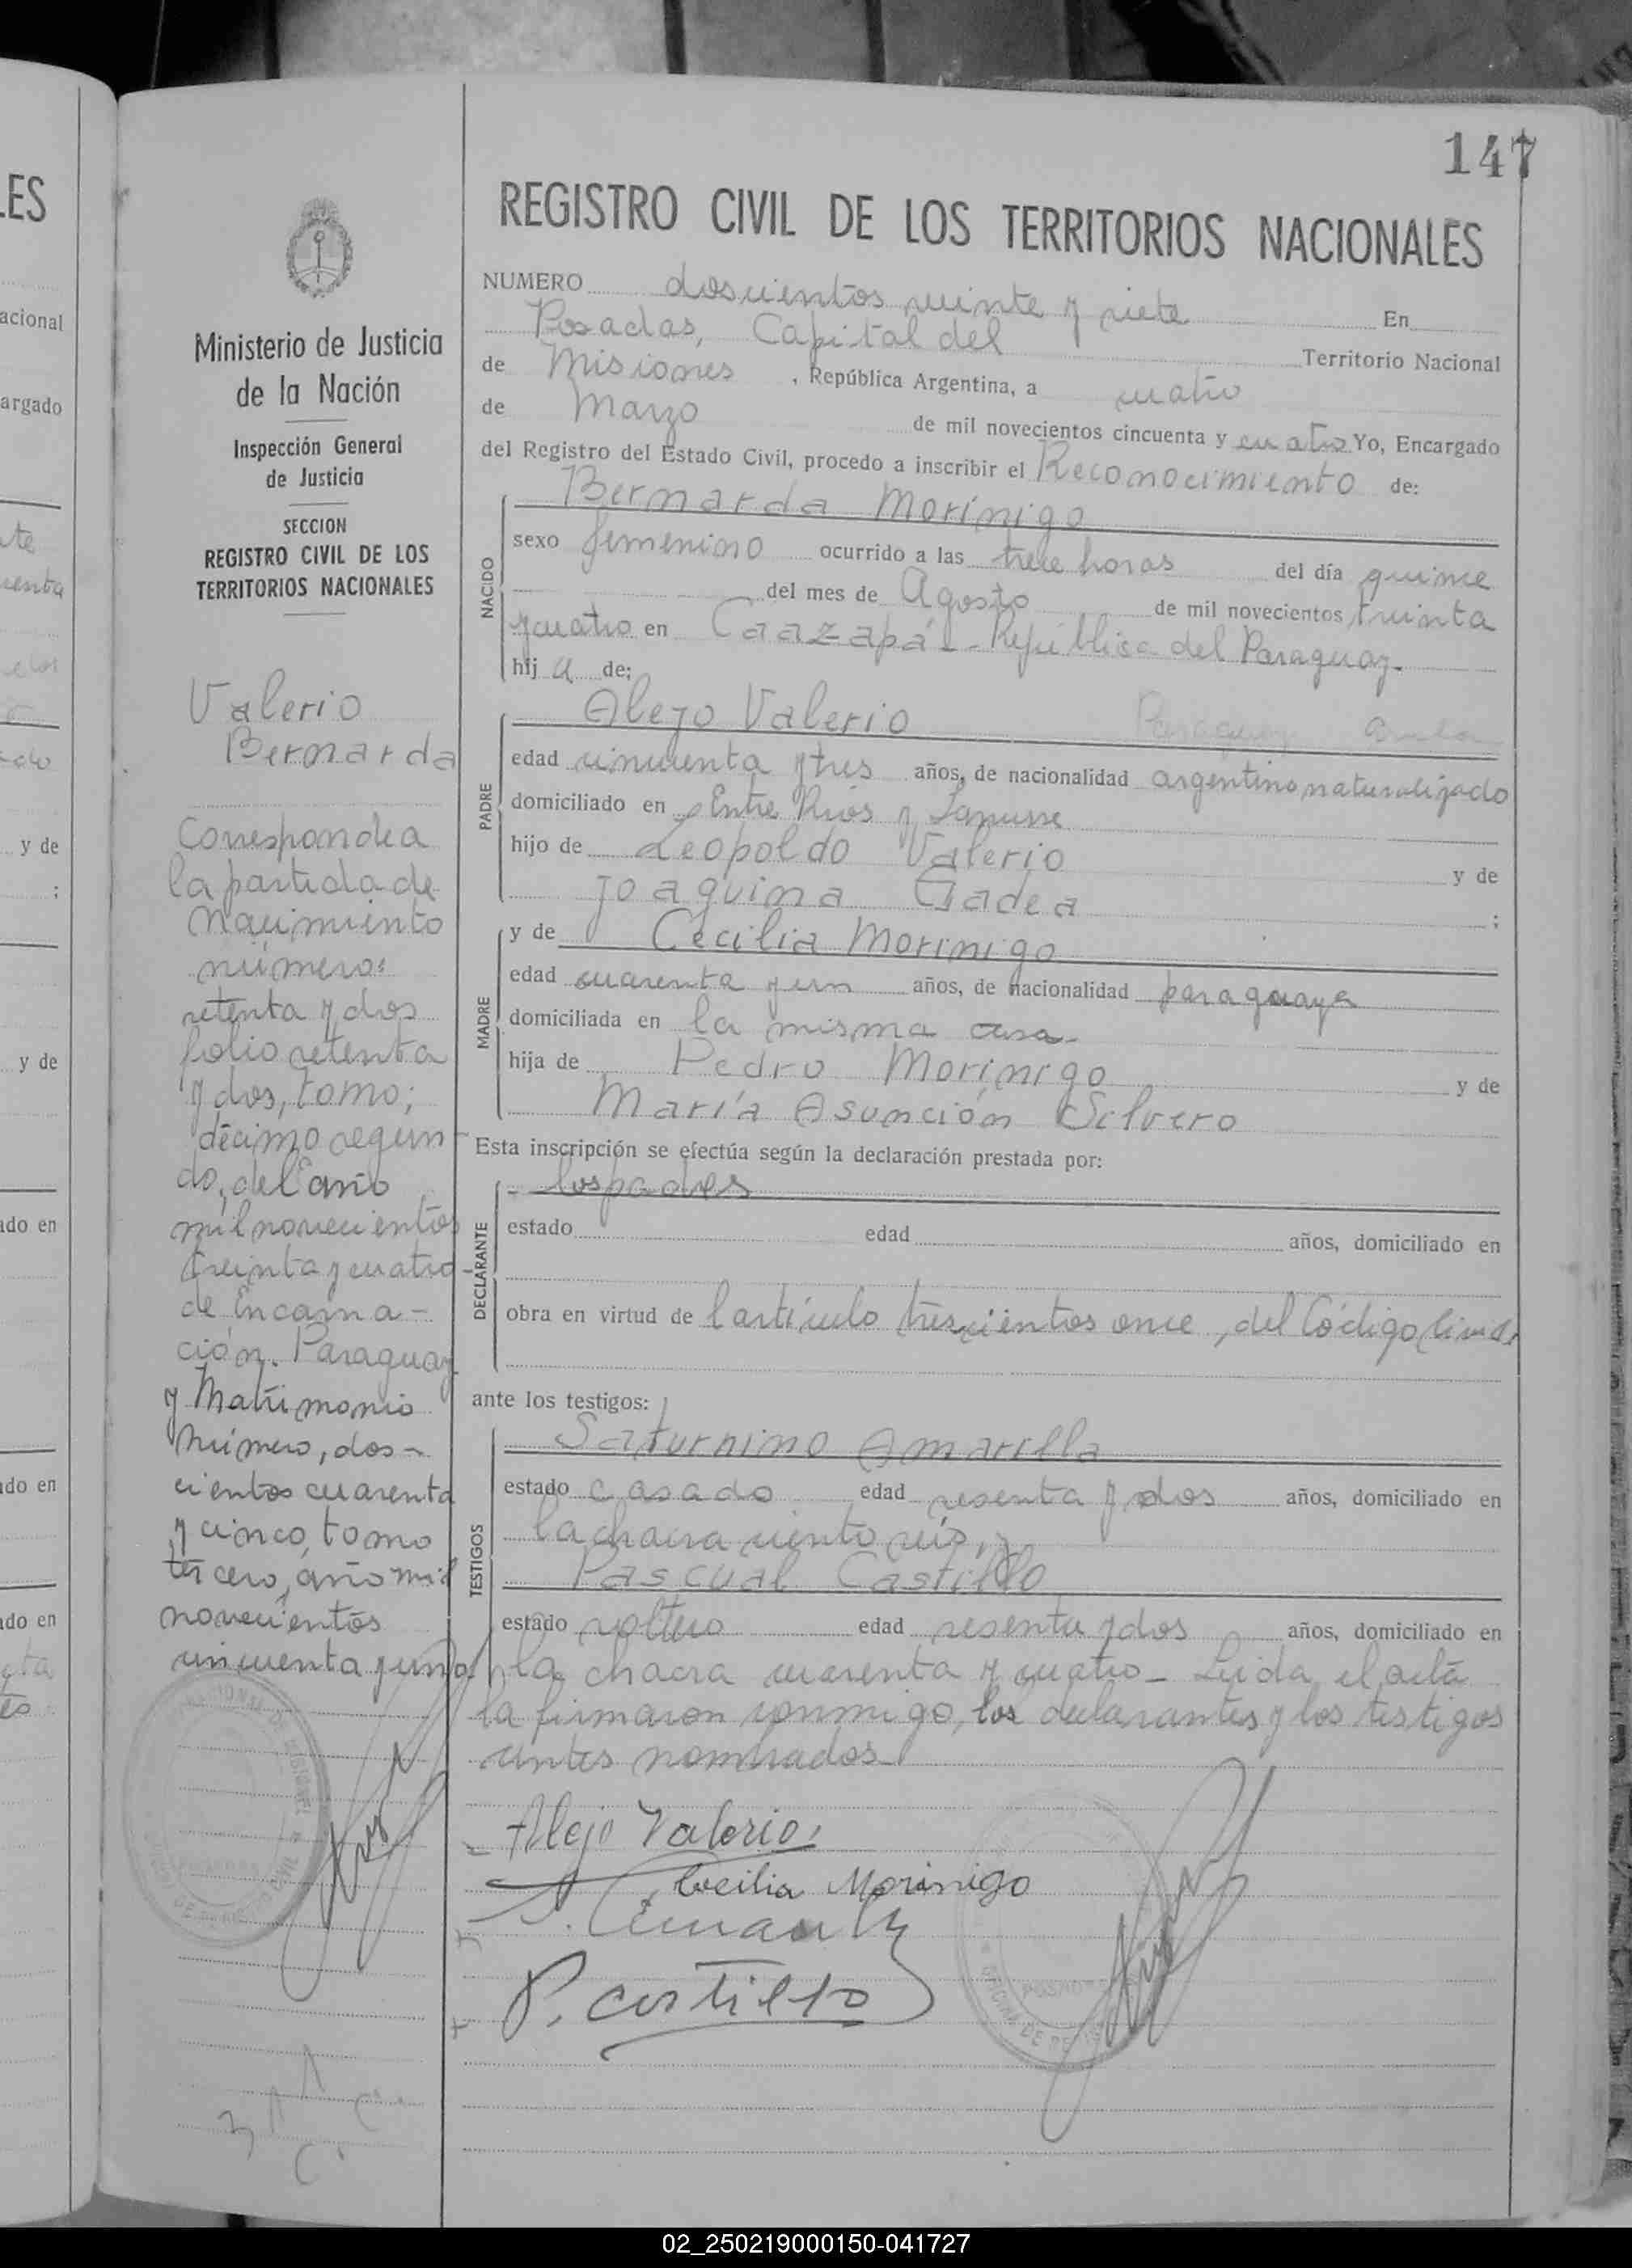 147
REGISTRO CIVIL DE LOS TERRITORIOS NACIONALES
NUMERO doscientos veinte y siete En
Posadas, Capital del Territorio Nacional
de Misiones, República Argentina, a cuatro
de Marzo de mil novecientos cincuenta y cuatro Yo, Encargado
del Registro del Estado Civil, procedo a inscribir el Reconocimiento de:
NACIDO
Bernarda Morínigo
sexo femenino ocurrido a las trece horas del día quince
del mes de Agosto de mil novecientos treinta
y cuatro en Caazapá - República del Paraguay.
hij a de:
PADRE
Alejo Valerio
edad cincuenta y tres años, de nacionalidad argentino naturalizado
domiciliado en Entre Ríos y Lanusse
hijo de Leopoldo Valerio y de
Joaquina Gadea ;
MADRE
y de Cecilia Morínigo
edad cuarenta y un años, de nacionalidad paraguaya
domiciliada en la misma casa-
hija de Pedro Morínigo y de
María Asunción Silvero
Esta inscripción se efectúa según la declaración prestada por:
DECLARANTE
- los padres
estado edad años, domiciliado en
obra en virtud de l artículo trescientos once, del Código Civil
ante los testigos:
TESTIGOS
Saturnino Amarilla
estado casado edad sesenta y dos años, domiciliado en
la chacra ciento seis, y
Pascual Castillo
estado soltero edad sesenta y dos años, domiciliado en
la chacra cuarenta y cuatro - Leida el acta
la firmaron conmigo, los declarantes y los testigos
antes nombrados
Alejo Valerio
Cecilia Morinigo
P. Castillo
Ministerio de Justicia
de la Nación
Inspección General
de Justicia
SECCION
REGISTRO CIVIL DE LOS
TERRITORIOS NACIONALES
Valerio
Bernarda
Corresponde a
la partida de
Nacimiento
número:
setenta y dos
folio setenta
y dos, tomo;
décimo segun-
do, del año
mil novecientos
treinta y cuatro-
de Encarna-
ción. Paraguay
y Matrimonio
Número, dos-
cientos cuarenta
y cinco, tomo
tercero, año mil
novecientos
cincuenta y uno
LES
acional
argado
y de
;
y de
ado en
ado en
ado en
02_250219000150-041727